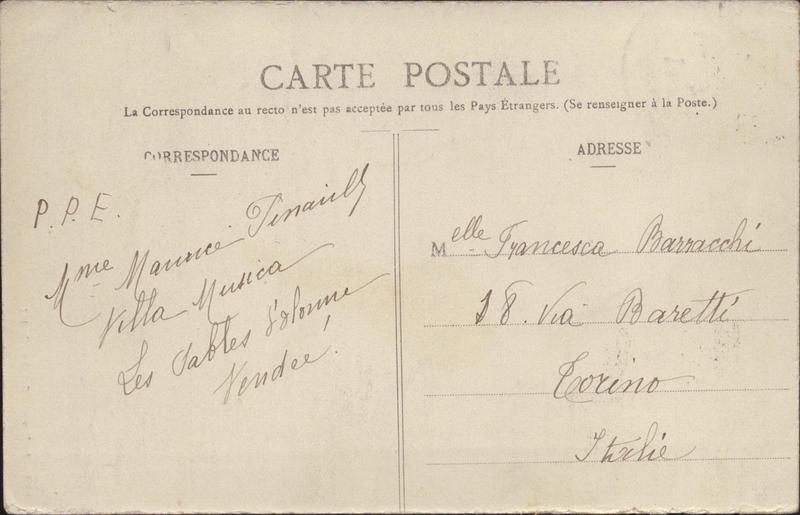 CARTE POSTALE
La Correspondance au recto n'est pas acceptée par tous les Pays Étrangers. (Se renseigner à la Poste.)
CORRESPONDANCE
P. P. E.
Mme Maurice
Villa Musica
Les Sables d'olonne
Vendée!
ADRESSE
Melle Francesca Barracchi
18. Via Baretti
Torino
Italie